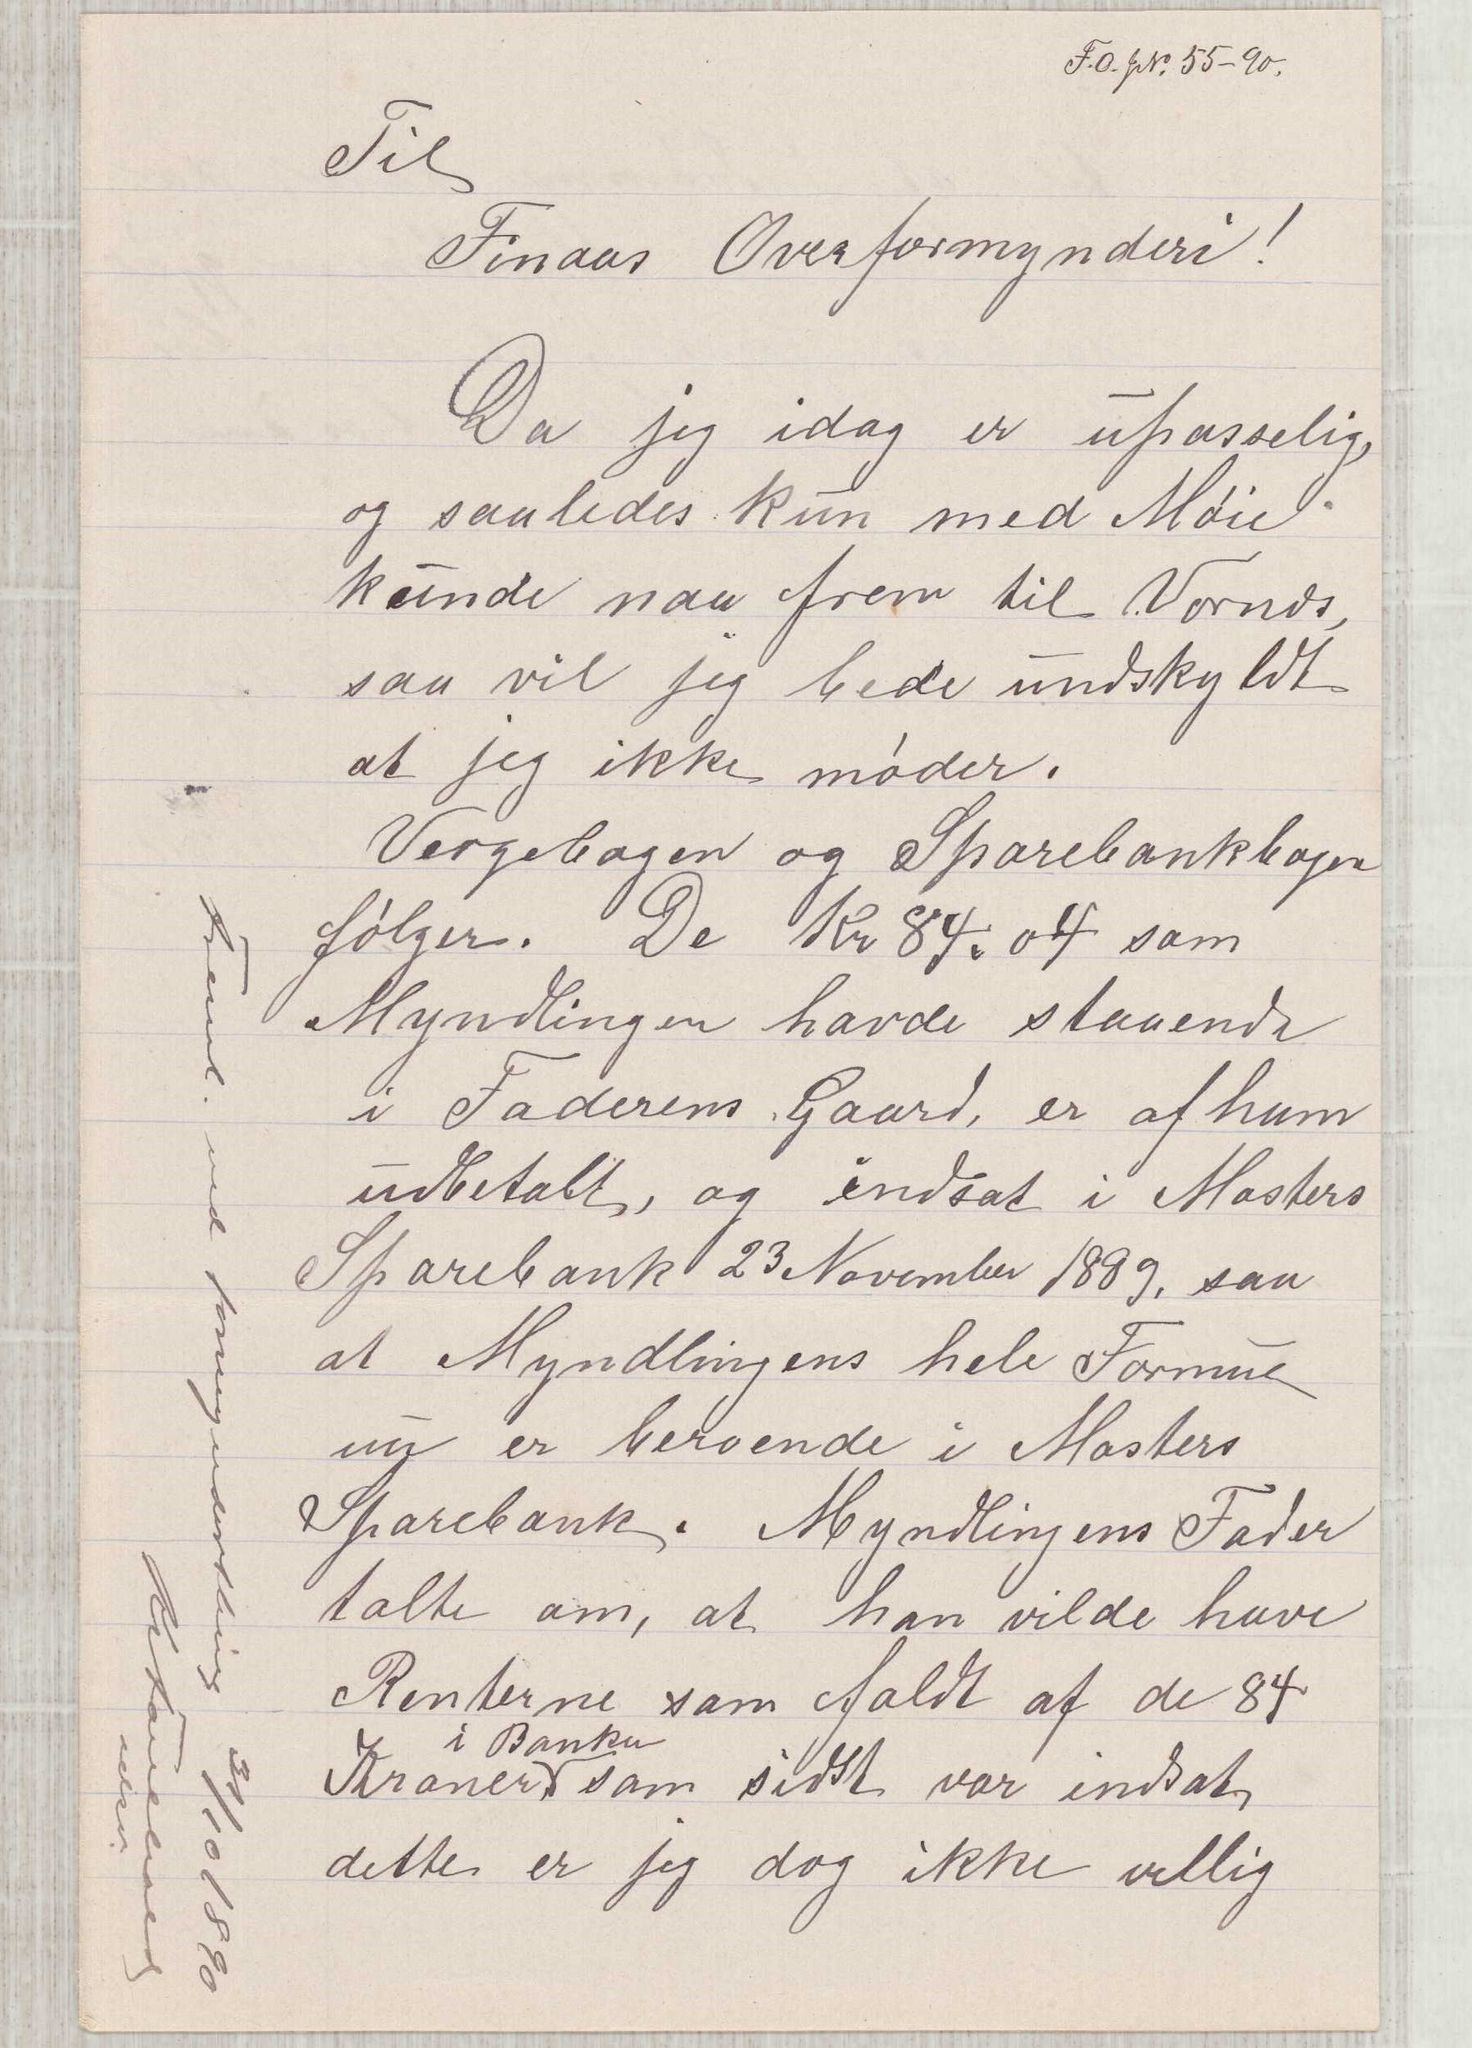 F.O. JN. 55-90.
Til
Finaas Overformynderi!
Da jeg idag er upasselig,
og saaledes kun med Møie
kunde naa frem til Vornæs,
saa vil jeg bede undskyldt
at jeg ikke møder.
Vergebogen og Sparebankbogen
følger. De Kr 84.04 som
Myndlingen havde staaende
i Faderens Gaard, er af ham
udbetalt, og indsat i Mosters
Sparebank 23 November 1889, saa
at Myndlingens hele Formue
nu er beroende i Mosters
Sparebank. Myndlingens Fader
talte om, at han vilde have
Renterne som faldt af de 84
i Banken
Kroner som sidst var indsat,
dette er jeg dog ikke villig
Freml. ved 31/10 1890